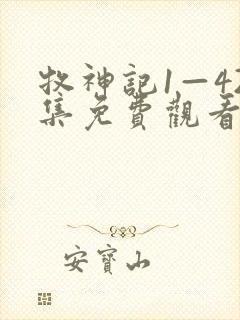 牧神記1—42
集免費觀看
安寶山